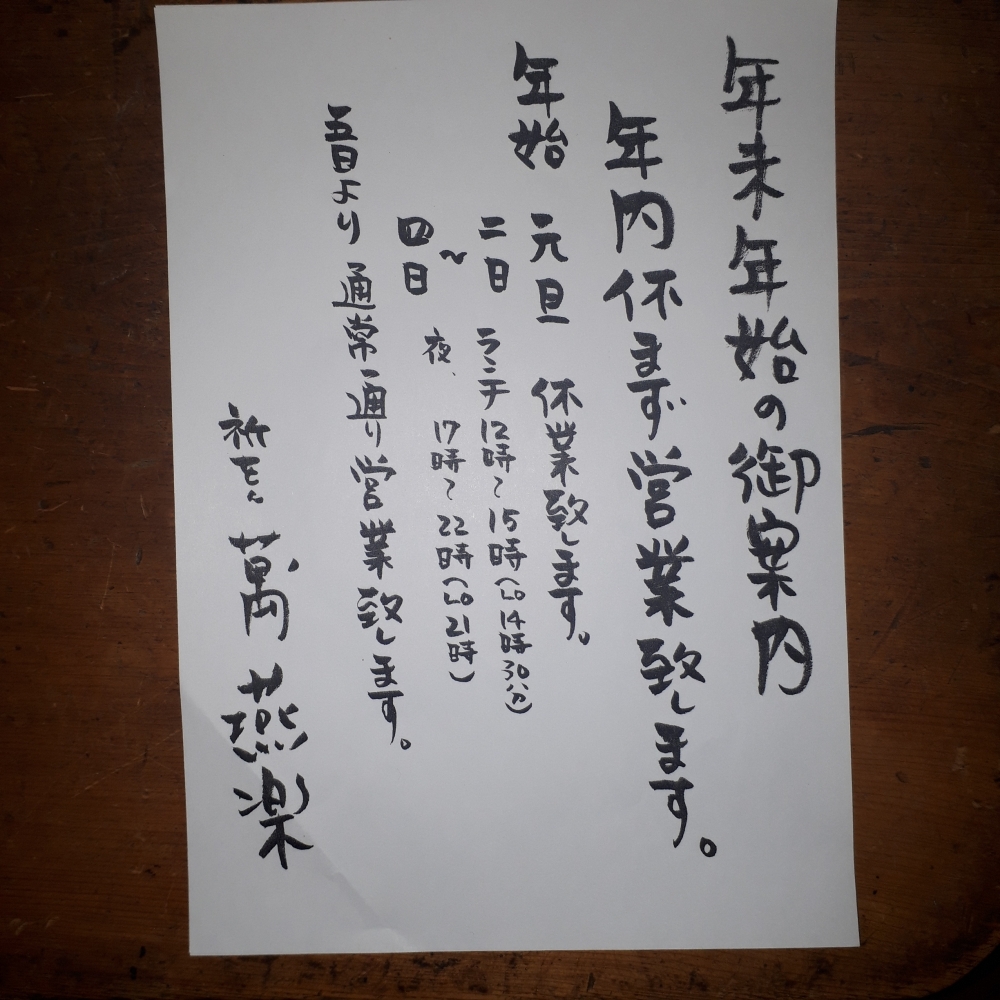 年末年始の御案内
年内休まず営業致します。
年始 元旦 休業致します。
二日 ランチ 12時〜15時(LO 14時30分)
〜
四日 夜、17時〜22時(LO 21時)
五日より 通常通り営業致します。
祇をん 萬 燕楽